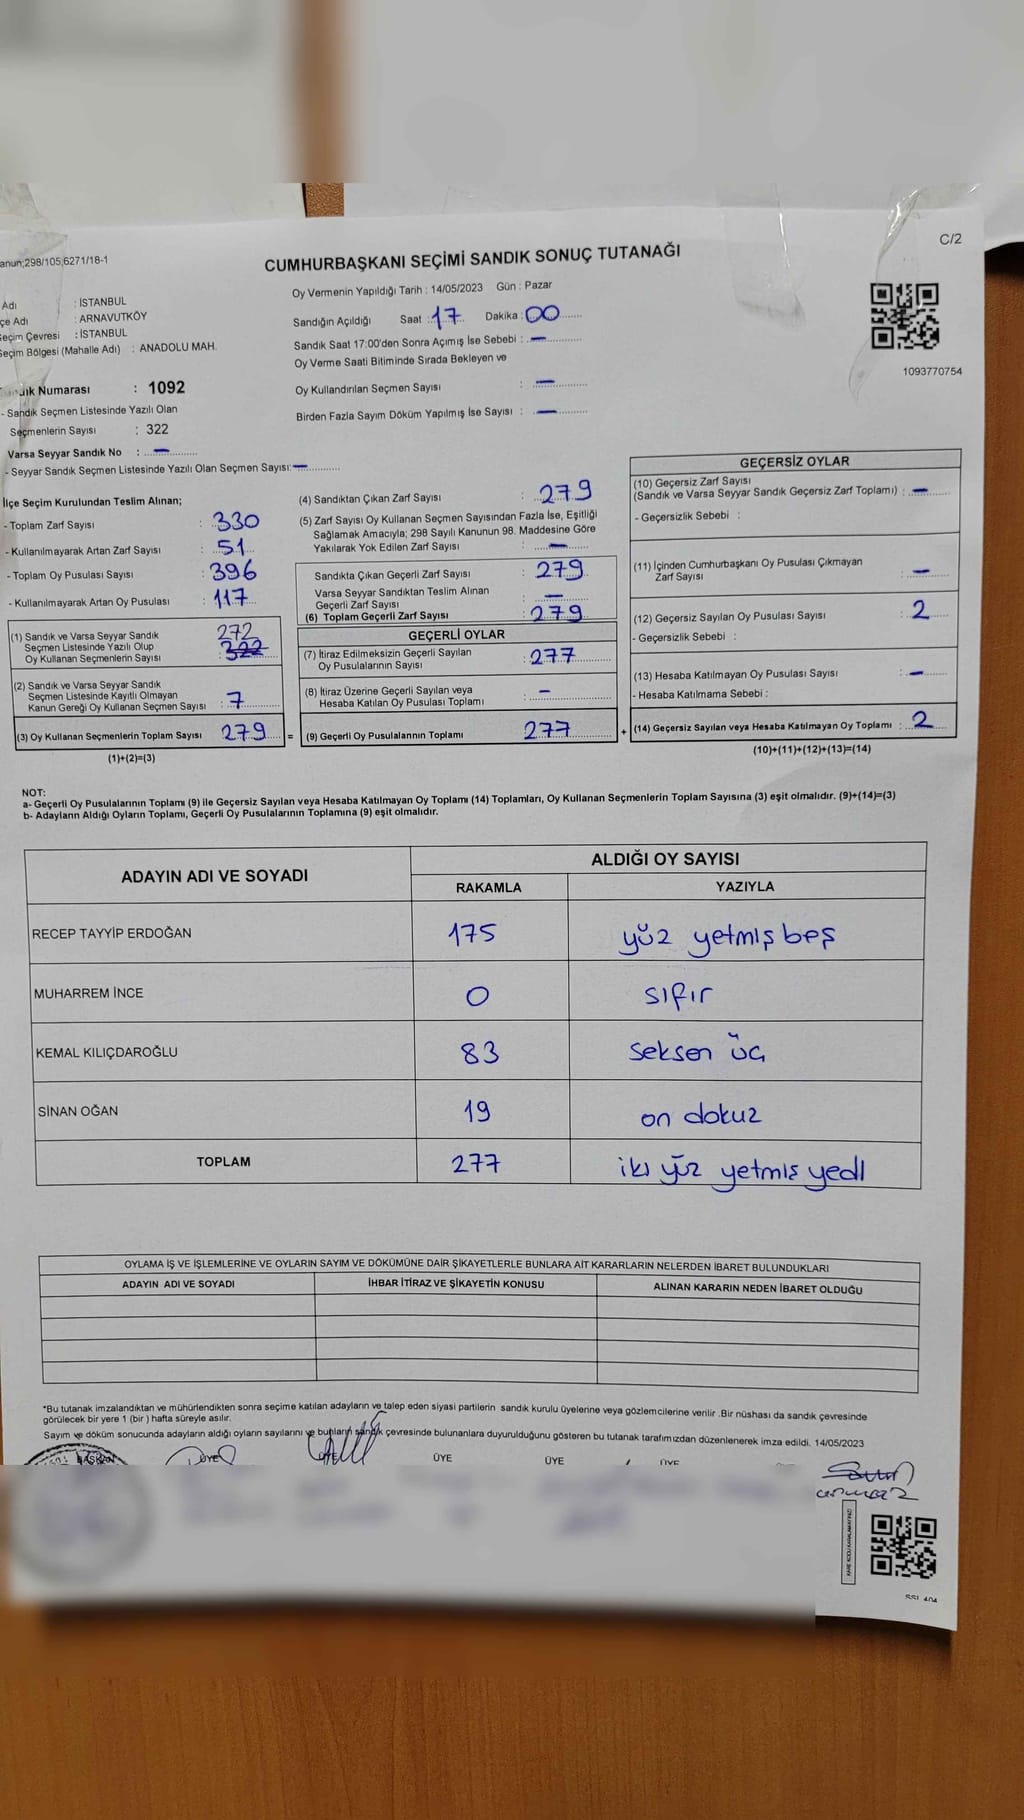 C/2
anun;298/105;6271/18-1
CUMHURBAŞKANI SEÇİMİ SANDIK SONUÇ TUTANAĞI
Adı : İSTANBUL
çe Adı : ARNAVUTKÖY
Seçim Çevresi : İSTANBUL
Seçim Bölgesi (Mahalle Adı) : ANADOLU MAH.
Numarası : 1092
- Sandık Seçmen Listesinde Yazılı Olan
Seçmenlerin Sayısı : 322
Varsa Seyyar Sandık No : —
- Seyyar Sandık Seçmen Listesinde Yazılı Olan Seçmen Sayısı: —
Oy Vermenin Yapıldığı Tarih : 14/05/2023 Gün : Pazar
Sandığın Açıldığı Saat : 17 Dakika : 00
Sandık Saat 17:00'den Sonra Açımış İse Sebebi : —
Oy Verme Saati Bitiminde Sırada Bekleyen ve
Oy Kullandırılan Seçmen Sayısı : —
Birden Fazla Sayım Döküm Yapılmış İse Sayısı : —
1093770754
İlçe Seçim Kurulundan Teslim Alınan;
- Toplam Zarf Sayısı : 330
- Kullanılmayarak Artan Zarf Sayısı : 51
- Toplam Oy Pusulası Sayısı : 396
- Kullanılmayarak Artan Oy Pusulası : 117
(1) Sandık ve Varsa Seyyar Sandık 272
Seçmen Listesinde Yazılı Olup
Oy Kullanan Seçmenlerin Sayısı : 322
(2) Sandık ve Varsa Seyyar Sandık
Seçmen Listesinde Kayıtlı Olmayan
Kanun Gereği Oy Kullanan Seçmen Sayısı : 7
(3) Oy Kullanan Seçmenlerin Toplam Sayısı : 279
(1)+(2)=(3)
(4) Sandıktan Çıkan Zarf Sayısı : 279
(5) Zarf Sayısı Oy Kullanan Seçmen Sayısından Fazla İse, Eşitliği
Sağlamak Amacıyla; 298 Sayılı Kanunun 98. Maddesine Göre
Yakılarak Yok Edilen Zarf Sayısı : —
Sandıkta Çıkan Geçerli Zarf Sayısı : 279
Varsa Seyyar Sandıktan Teslim Alınan
Geçerli Zarf Sayısı : —
(6) Toplam Geçerli Zarf Sayısı : 279
GEÇERLİ OYLAR
(7) İtiraz Edilmeksizin Geçerli Sayılan
Oy Pusulalarının Sayısı : 277
(8) İtiraz Üzerine Geçerli Sayılan veya
Hesaba Katılan Oy Pusulası Toplamı : —
= (9) Geçerli Oy Pusulalarının Toplamı 277
GEÇERSİZ OYLAR
(10) Geçersiz Zarf Sayısı
(Sandık ve Varsa Seyyar Sandık Geçersiz Zarf Toplamı) : —
- Geçersizlik Sebebi :
(11) İçinden Cumhurbaşkanı Oy Pusulası Çıkmayan
Zarf Sayısı : —
(12) Geçersiz Sayılan Oy Pusulası Sayısı : 2
- Geçersizlik Sebebi :
(13) Hesaba Katılmayan Oy Pusulası Sayısı : —
- Hesaba Katılmama Sebebi :
+ (14) Geçersiz Sayılan veya Hesaba Katılmayan Oy Toplamı : 2
(10)+(11)+(12)+(13)=(14)
NOT:
a- Geçerli Oy Pusulalarının Toplamı (9) ile Geçersiz Sayılan veya Hesaba Katılmayan Oy Toplamı (14) Toplamları, Oy Kullanan Seçmenlerin Toplam Sayısına (3) eşit olmalıdır. (9)+(14)=(3)
b- Adayların Aldığı Oyların Toplamı, Geçerli Oy Pusulalarının Toplamına (9) eşit olmalıdır.
ADAYIN ADI VE SOYADI ALDIĞI OY SAYISI
RAKAMLA YAZIYLA
RECEP TAYYİP ERDOĞAN 175 yüz yetmiş beş
MUHARREM İNCE 0 sıfır
KEMAL KILIÇDAROĞLU 83 seksen üç
SİNAN OĞAN 19 on dokuz
TOPLAM 277 iki yüz yetmiş yedi
OYLAMA İŞ VE İŞLEMLERİNE VE OYLARIN SAYIM VE DÖKÜMÜNE DAİR ŞİKAYETLERLE BUNLARA AİT KARARLARIN NELERDEN İBARET BULUNDUKLARI
ADAYIN ADI VE SOYADI İHBAR İTİRAZ VE ŞİKAYETİN KONUSU ALINAN KARARIN NEDEN İBARET OLDUĞU
*Bu tutanak imzalandıktan ve mühürlendikten sonra seçime katılan adayların ve talep eden siyasi partilerin sandık kurulu üyelerine veya gözlemcilerine verilir .Bir nüshası da sandık çevresinde
görülecek bir yere 1 (bir ) hafta süreyle asılır.
Sayım ve döküm sonucunda adayların aldığı oyların sayılarını ve bunların sandık çevresinde bulunanlara duyurulduğunu gösteren bu tutanak tarafımızdan düzenlenerek imza edildi. 14/05/2023
BAŞKAN ÜYE ÜYE ÜYE ÜYE ÜYE